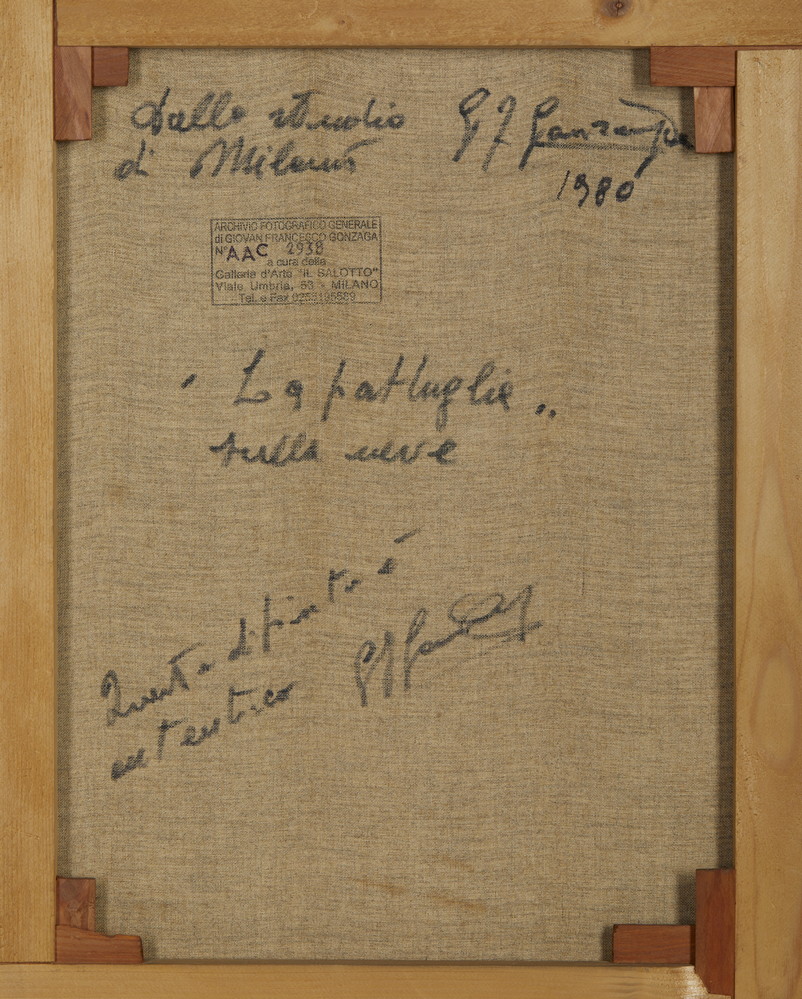 Dallo studio G F Gonzaga
di Milano
1980
ARCHIVIO FOTOGRAFICO GENERALE
di GIOVAN FRANCESCO GONZAGA
N° AAC 2938
a cura della
Galleria d'Arte "IL SALOTTO"
Viale Umbria, 53 - MILANO
Tel. e Fax
" La pattuglia "
sulla neve
Questo dipinto è
autentico GF Gonzaga